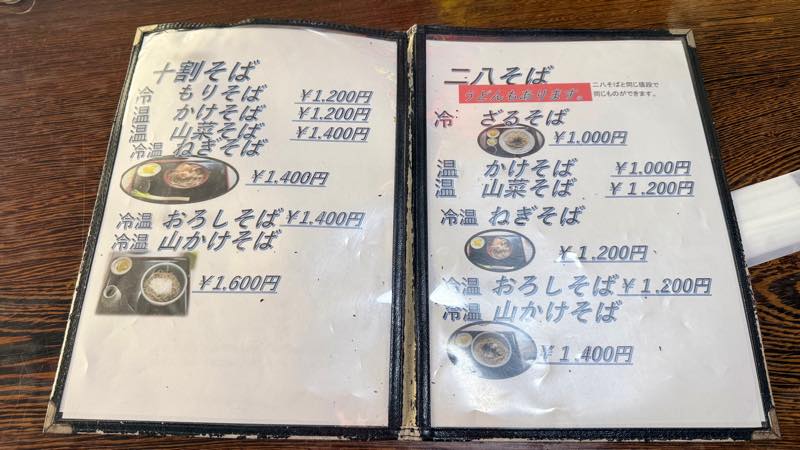 十割そば
冷 もりそば ￥1,200円
温 かけそば ￥1,200円
温 山菜そば ￥1,400円
冷温 ねぎそば
￥1,400円
冷温 おろしそば ￥1,400円
冷温 山かけそば
￥1,600円
二八そば
うどんもあります。
二八そばと同じ値段で
同じものができます。
冷 ざるそば
￥1,000円
温 かけそば ￥1,000円
温 山菜そば ￥1,200円
冷温 ねぎそば
￥1,200円
冷温 おろしそば ￥1,200円
冷温 山かけそば
￥1,400円